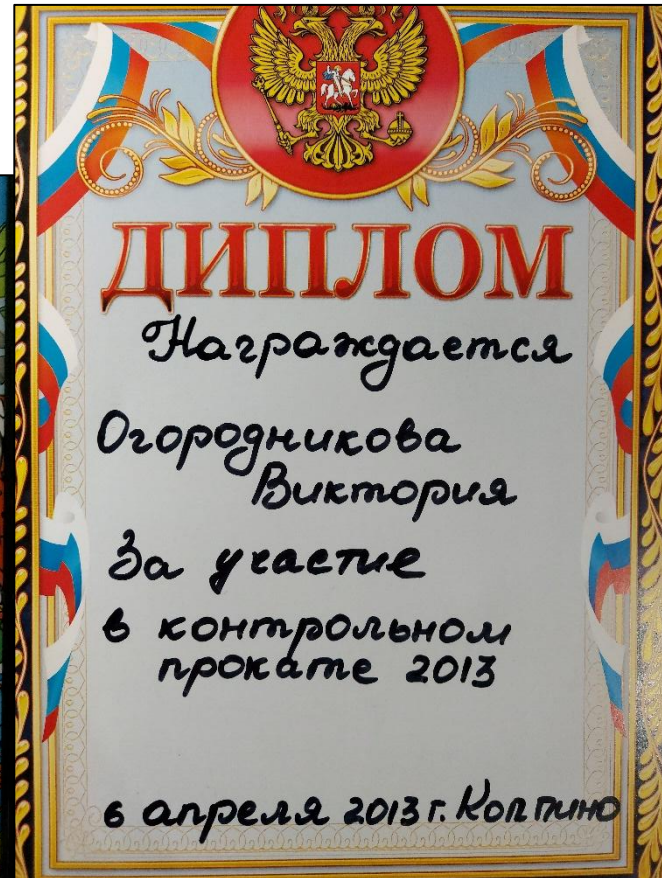 ДИПЛОМ
Награждается
Огородникова
Виктория
За участие
в контрольном
прокате 2013
6 апреля 2013 г. Колпино